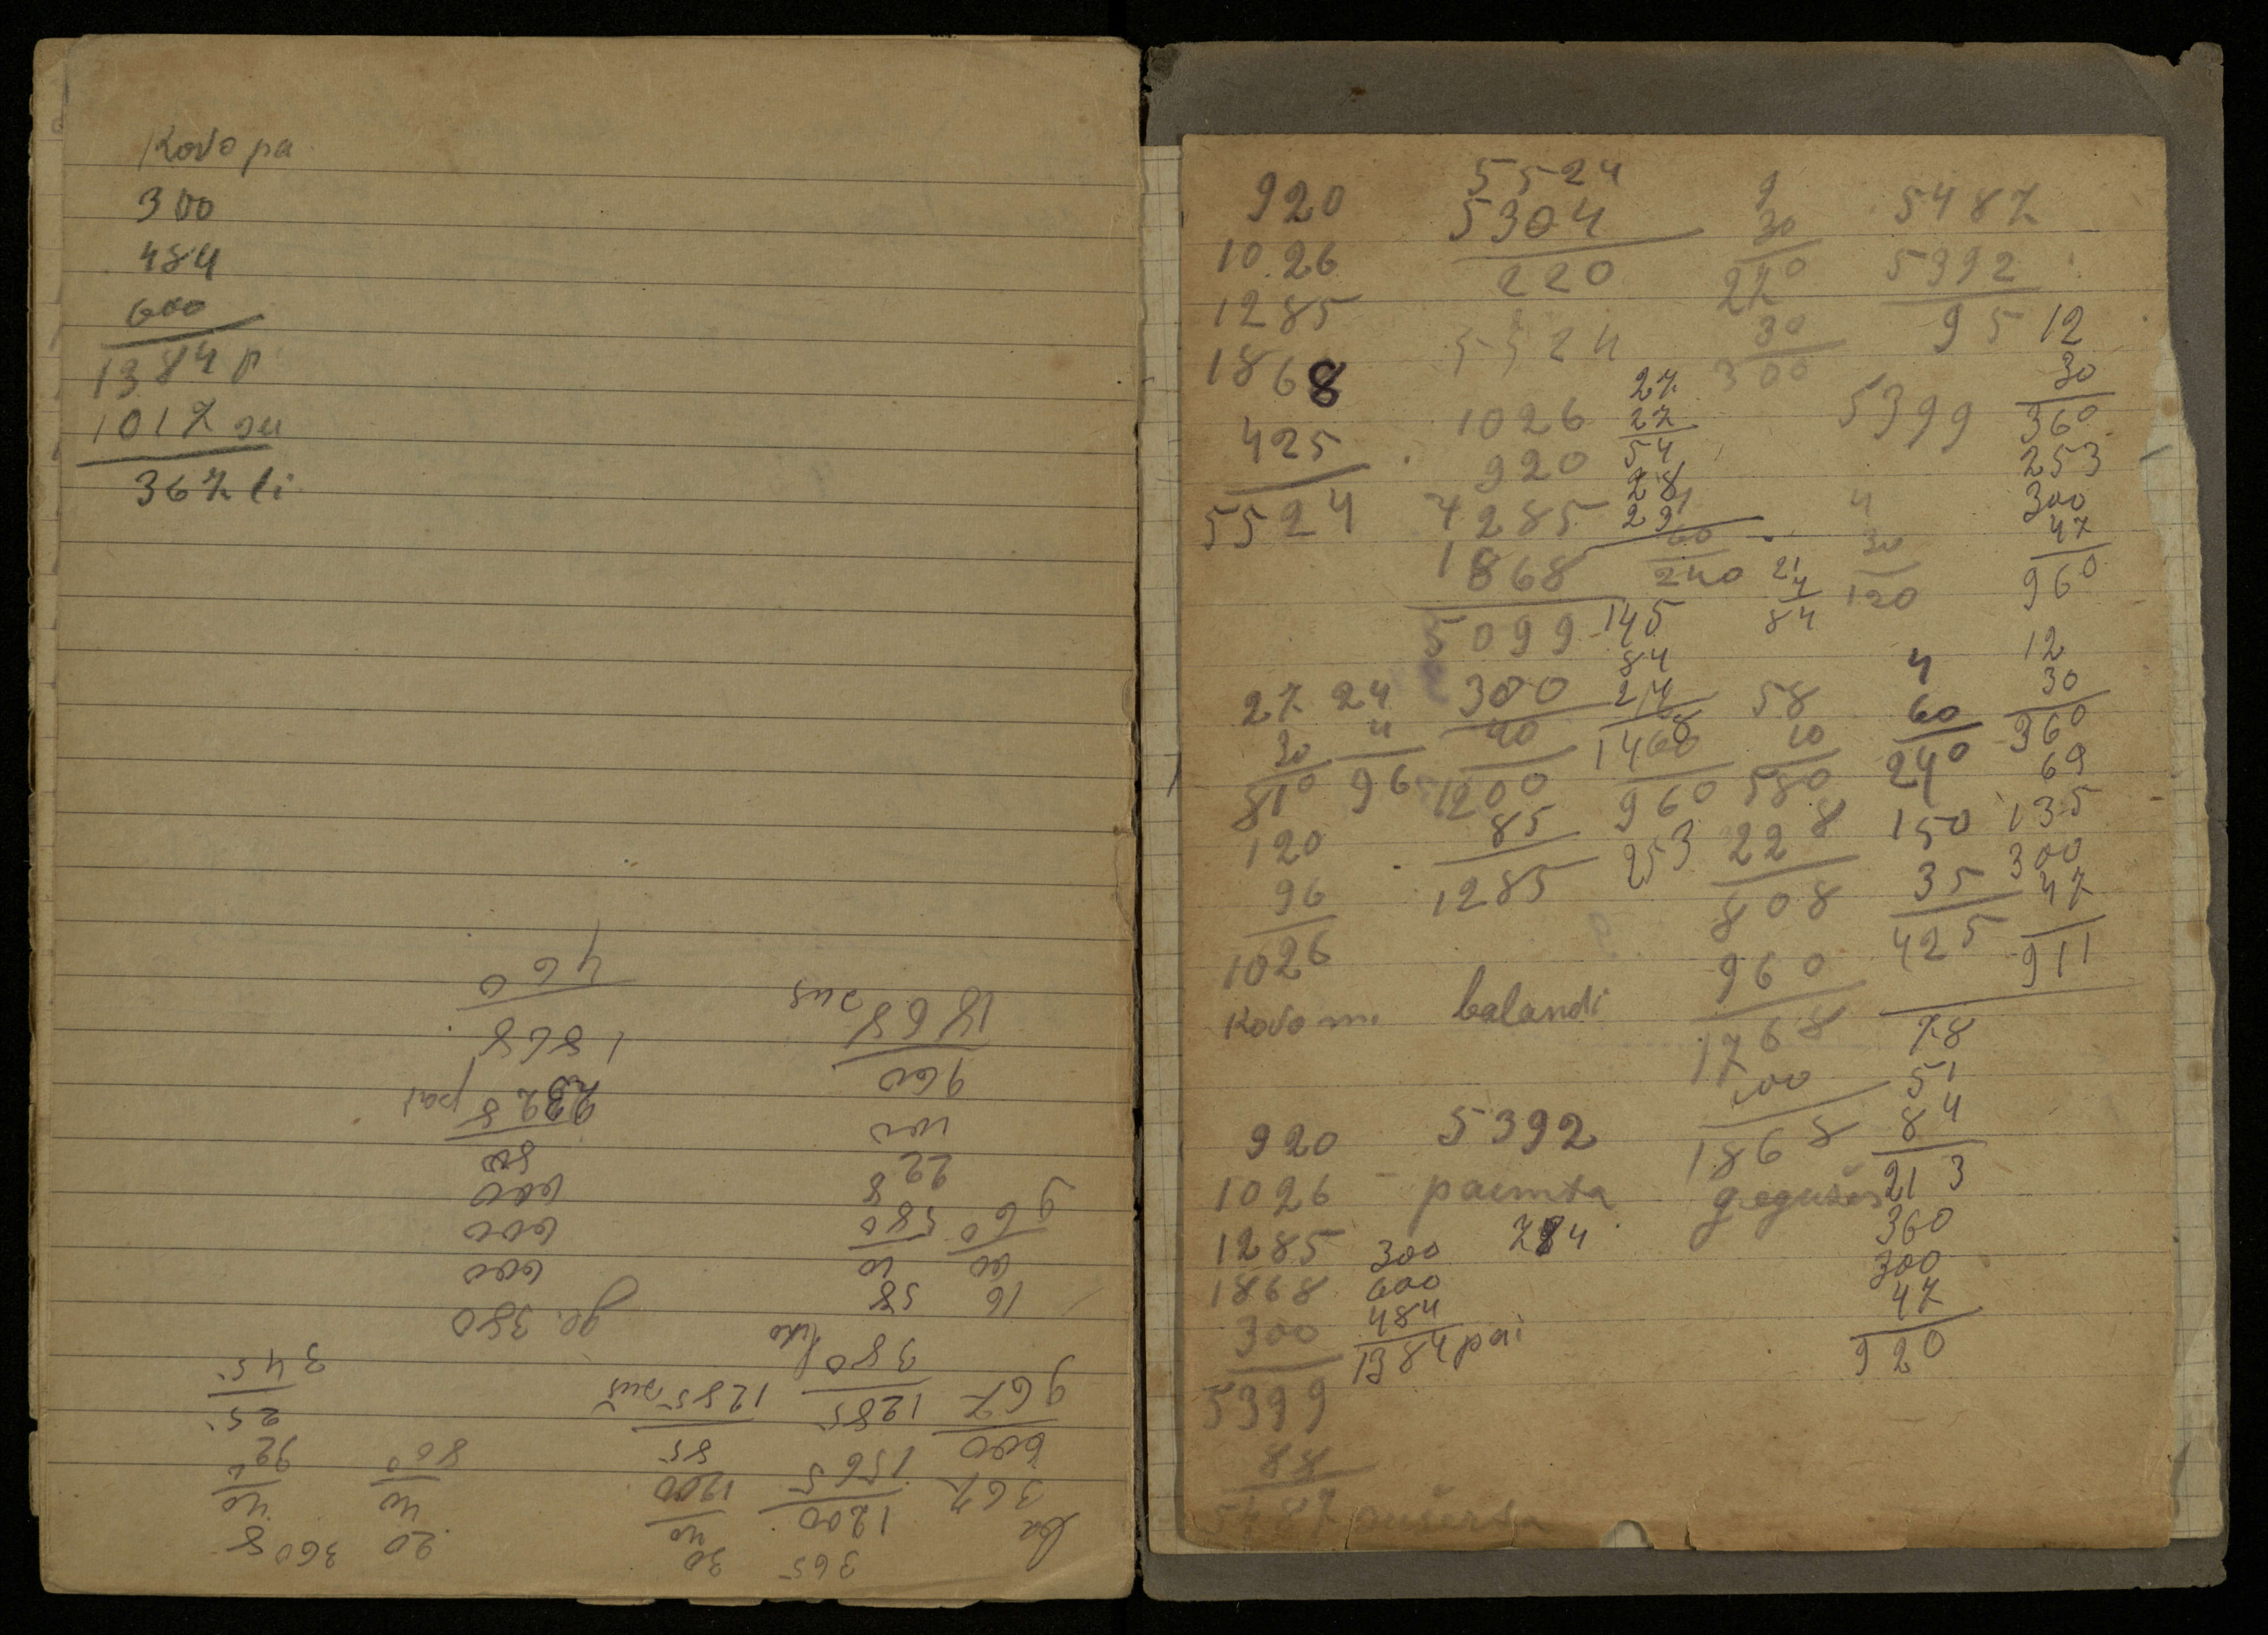 Kovo pa
300
484
600
1384 p
1017 su
367 li
365
30
20
3608
la
367
1200
40
40
40
1565
1200
800
92
600
85
25
967
1285
1285 suš
345
380 liko
16
58
ga. 380
60
10
600
960
580
600
228
600
400
80
960
2328 pai
1868 sus
1868
460
920
1026
1285
1868
425
5524
5524
5304
220
5524
1026
920
1285
1868
5099
300
40
1200
85
1285
9
30
270
30
300
27
27
54
28
29
60
240
21
4
84
145
84
1460
960
253
5487
5392
95
5399
4
30
120
12
30
360
253
300
47
960
27
30
810
120
96
1026
24
4
96
58
10
580
228
808
960
1768
100
1868
4
60
240
150
35
425
12
30
360
69
135
300
47
911
Kovo m.
balandi
78
51
84
213
360
300
47
920
920
1026
1285
1868
300
5399
88
5487 sušerta
5392
paimta
gegužės
784
300
600
484
1384 pai